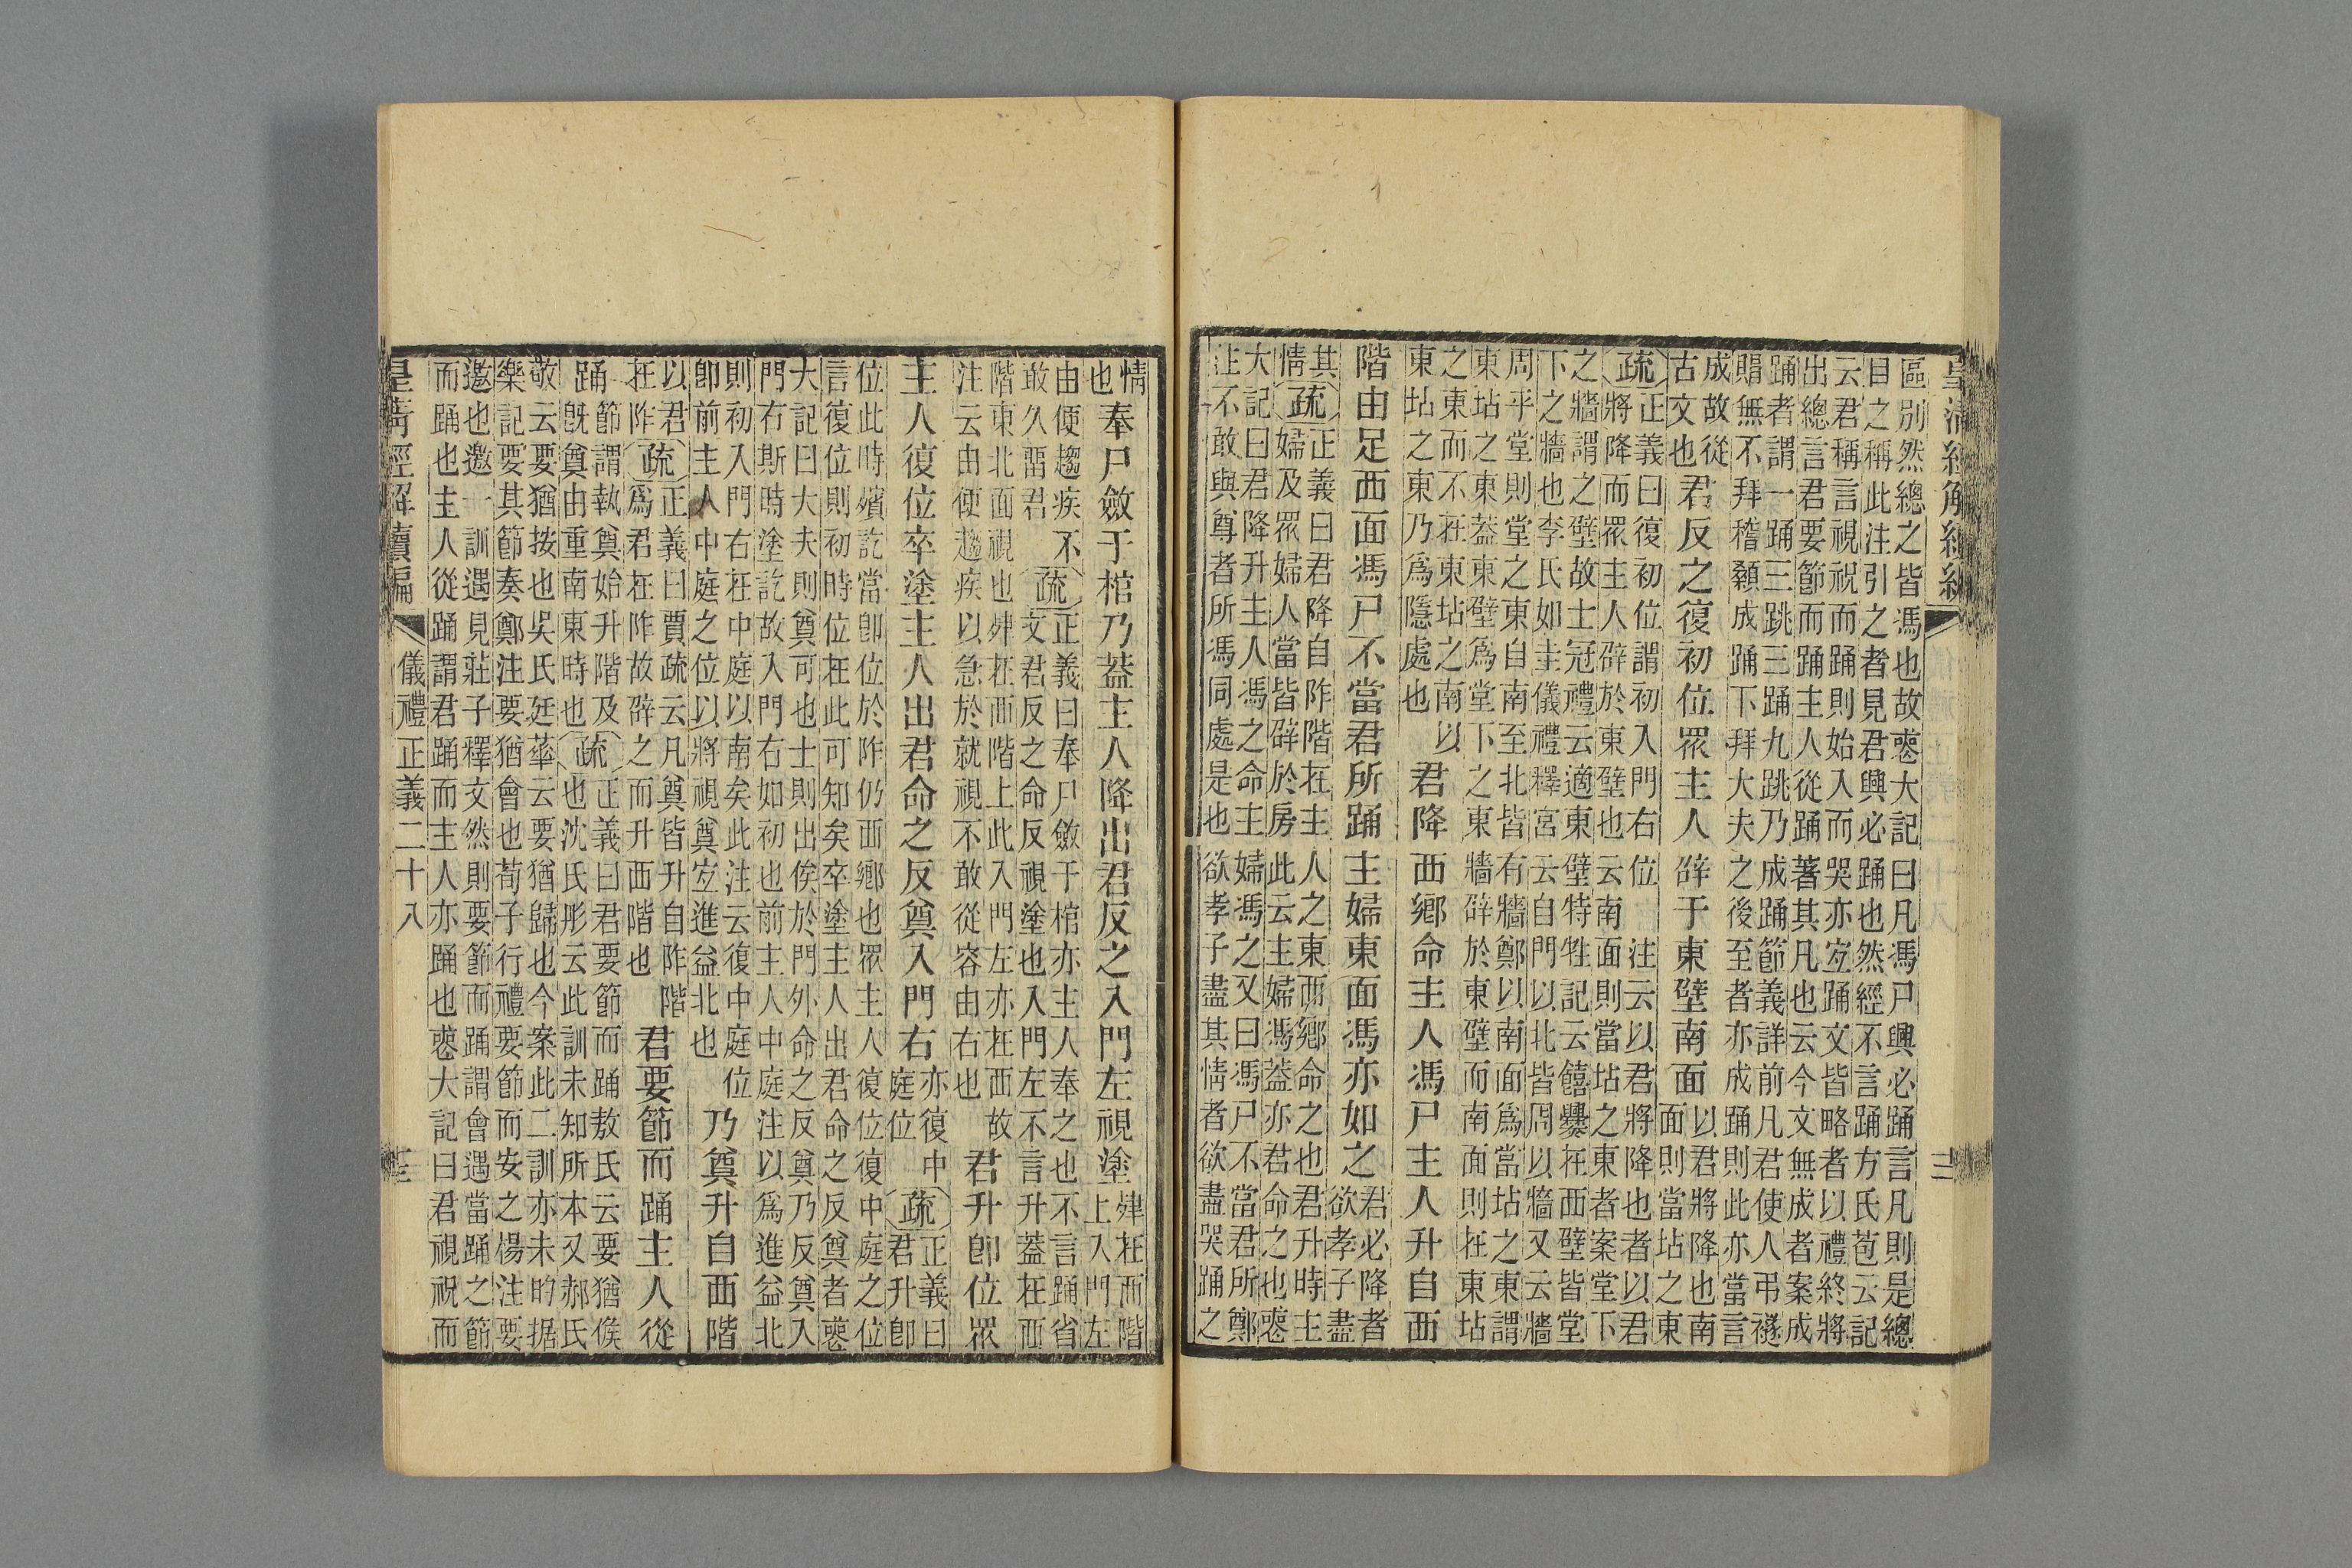 皇清經解續編
區別然總之皆馮也故喪大記曰凡馮尸興必踊言凡則是總
目之稱此注引之者見君興必踊也然經不言踊方氏苞云記
云君稱言視祝而踊則始入而哭亦宐踊文皆略者以禮終將
出總言君要節而踊主人從踊著其凡也云今文無成者案成
踊者謂一踊三跳三踊九跳乃成踊節義詳前凡君使人弔襚
賵無不拜稽顙成踊下拜大夫之後至者亦成踊則此亦當言
成故從
古文也
君反之復初位眾主人辟于東壁南面
以君將降也南
面則當坫之東
疏
正義曰復初位謂初入門右位 注云以君將降也者以君
將降而眾主人辟於東壁也云南面則當坫之東者案堂下
之牆謂之壁故士冠禮云適東壁特牲記云饎爨在西壁皆堂
下之牆也李氏如圭儀禮釋宮云自門以北皆周以牆又云牆
周乎堂則堂之東自南至北皆有牆鄭以南面爲當坫之東謂
東坫之東葢東壁爲堂下之東牆辟於東壁而南面則在東坫
之東而不在東坫之南以
東坫之東乃爲隱處也
君降西鄉命主人馮尸主人升自西
階由足西面馮尸不當君所踊主婦東面馮亦如之
君必降者
欲孝子盡
其
情
疏
正義曰君降自阼階在主人之東西鄉命之也君升時主
婦及眾婦人當皆辟於房此云主婦馮葢亦君命之也喪
大記曰君降升主人馮之命主婦馮之又曰馮尸不當君所鄭
注不敢與尊者所馮同處是也欲孝子盡其情者欲盡哭踊之
情
也
奉尸斂于棺乃葢主人降出君反之入門左視塗
肂在西階
上入門左
由便趨疾不
敢久留君
疏
正義曰奉尸斂于棺亦主人奉之也不言踊省
文君反之命反視塗也入門左不言升葢在西
階東北面視也肂在西階上此入門左亦在西故
注云由便趨疾以急於就視不敢從容由右也
君升卽位眾
主人復位卒塗主人出君命之反奠入門右
亦復中
庭位
疏
正義曰
君升卽
位此時殯訖當卽位於阼仍西鄉也眾主人復位復中庭之位
言復位則初時位在此可知矣卒塗主人出君命之反奠者喪
大記曰大夫則奠可也士則出俟於門外命之反奠乃反奠入
門右斯時塗訖故入門右如初也前主人中庭注以爲進益北
則初入門右在中庭以南矣此注云復中庭位
卽前主人中庭之位以將視奠宐進益北也
乃奠升自西階
以君
在阼
疏
正義曰賈疏云凡奠皆升自阼階
爲君在阼故辟之而升西階也
君要節而踊主人從
踊
節謂執奠始升階及
旣奠由重南東時也
疏
正義曰君要節而踊敖氏云要猶俟
也沈氏彤云此訓未知所本又郝氏
敬云要猶按也吳氏廷華云要猶歸也今案此二訓亦未的据
樂記要其節奏鄭注要猶會也荀子行禮要節而安之楊注要
邀也邀一訓遇見莊子釋文然則要節而踊謂會遇當踊之節
而踊也主人從踊謂君踊而主人亦踊也喪大記曰君視祝而
皇清經解續編
儀禮正義二十八